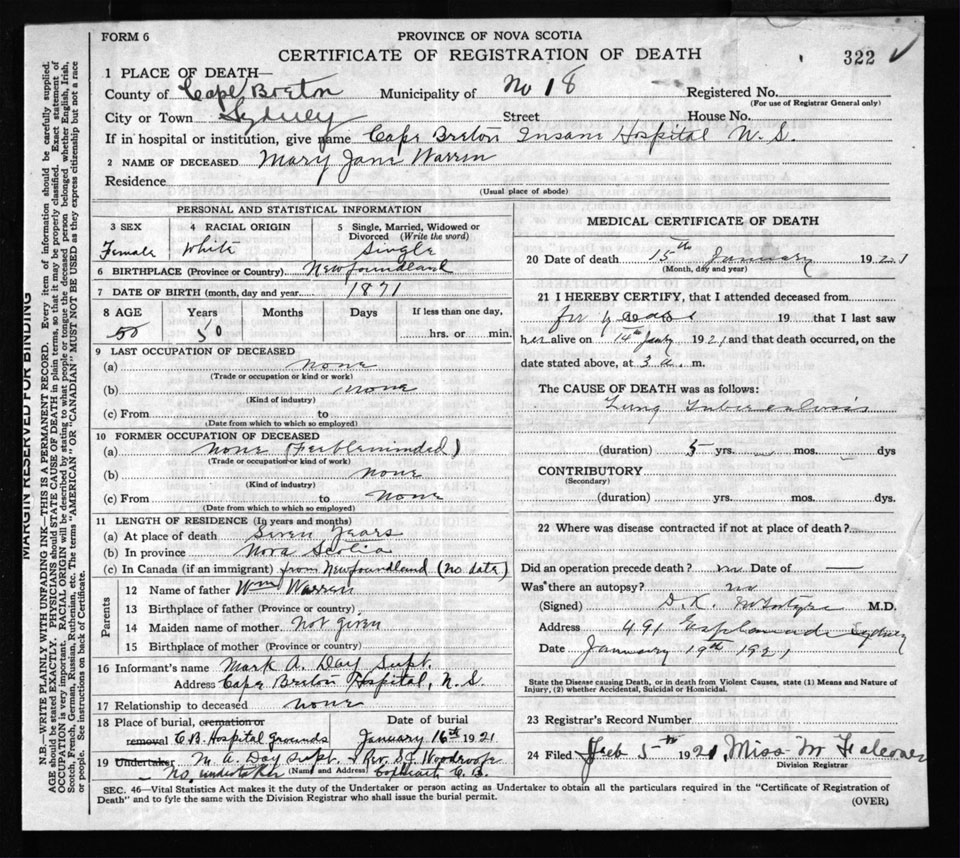 FORM 6
PROVINCE OF NOVA SCOTIA
CERTIFICATE OF REGISTRATION OF DEATH
322
1 PLACE OF DEATH—
County of Cape Breton Municipality of No 18 Registered No.
(For use of Registrar General only)
City or Town Sydney Street House No.
If in hospital or institution, give name Cape Breton Insane Hospital N.S.
2 NAME OF DECEASED Mary Jane Warren
Residence
(Usual place of abode)
PERSONAL AND STATISTICAL INFORMATION
3 SEX Female
4 RACIAL ORIGIN White
5 Single, Married, Widowed or Divorced (Write the word) Single
6 BIRTHPLACE (Province or Country) Newfoundland
7 DATE OF BIRTH (month, day and year) 1871
8 AGE Years Months Days If less than one day,
50 50 hrs. or min.
9 LAST OCCUPATION OF DECEASED
(a) none
(Trade or occupation or kind or work)
(b) none
(Kind of industry)
(c) From to
(Date from which to which so employed)
10 FORMER OCCUPATION OF DECEASED
(a) none (Feebleminded)
(Trade or occupation or kind or work)
(b) none
(Kind of industry)
(c) From to none
(Date from which to which so employed)
11 LENGTH OF RESIDENCE (In years and months)
(a) At place of death Seven Years
(b) In province Nova Scotia
(c) In Canada (if an immigrant) from Newfoundland (no date)
Parents
12 Name of father Wm Warren
13 Birthplace of father (Province or country)
14 Maiden name of mother Not given
15 Birthplace of mother (Province or country)
16 Informant's name Mark A. Day Supt.
Address Cape Breton Hospital, N.S.
17 Relationship to deceased none
18 Place of burial, cremation or removal C.B. Hospital Grounds
Date of burial January 16th 1921
19 Undertaker M. A. Day Supt. Rev. S.J. Woodroofe
no undertaker (Name and Address) C.B.
MEDICAL CERTIFICATE OF DEATH
20 Date of death 15th January 1921
(Month, day and year)
21 I HEREBY CERTIFY, that I attended deceased from
for years 19 that I last saw
her alive on 14th Jany 1921 and that death occurred, on the
date stated above, at 3 a. m.
The CAUSE OF DEATH was as follows:
Lung Tuberculosis
(duration) 5 yrs. mos. dys
CONTRIBUTORY
(Secondary)
(duration) yrs. mos. dys.
22 Where was disease contracted if not at place of death?
Did an operation precede death? no Date of —
Was there an autopsy? no
(Signed) D.K. McIntyre M.D.
Address 491 Esplanade Sydney
Date January 19th 1921
State the Disease causing Death, or in death from Violent Causes, state (1) Means and Nature of
Injury, (2) whether Accidental, Suicidal or Homicidal.
23 Registrar's Record Number
24 Filed Feb 5th 1921, Miss M Falconer
Division Registrar
SEC. 46—Vital Statistics Act makes it the duty of the Undertaker or person acting as Undertaker to obtain all the particulars required in the "Certificate of Registration of
Death" and to fyle the same with the Division Registrar who shall issue the burial permit.
(OVER)
MARGIN RESERVED FOR BINDING
N.B.—WRITE PLAINLY WITH UNFADING INK—THIS IS A PERMANENT RECORD. Every item of information should be carefully supplied.
AGE should be stated EXACTLY. PHYSICIANS should STATE CAUSE OF DEATH in plain terms, so that it may be properly classified. Exact statement of
OCCUPATION is very important. RACIAL ORIGIN will be described by stating to what people or tongue the deceased person belonged whether English, Irish,
Scotch, French, German, Russian, Ruthenian, etc. The terms "AMERICAN" OR "CANADIAN" MUST NOT BE USED as they express citizenship but not a race
or people. See instructions on back of Certificate.